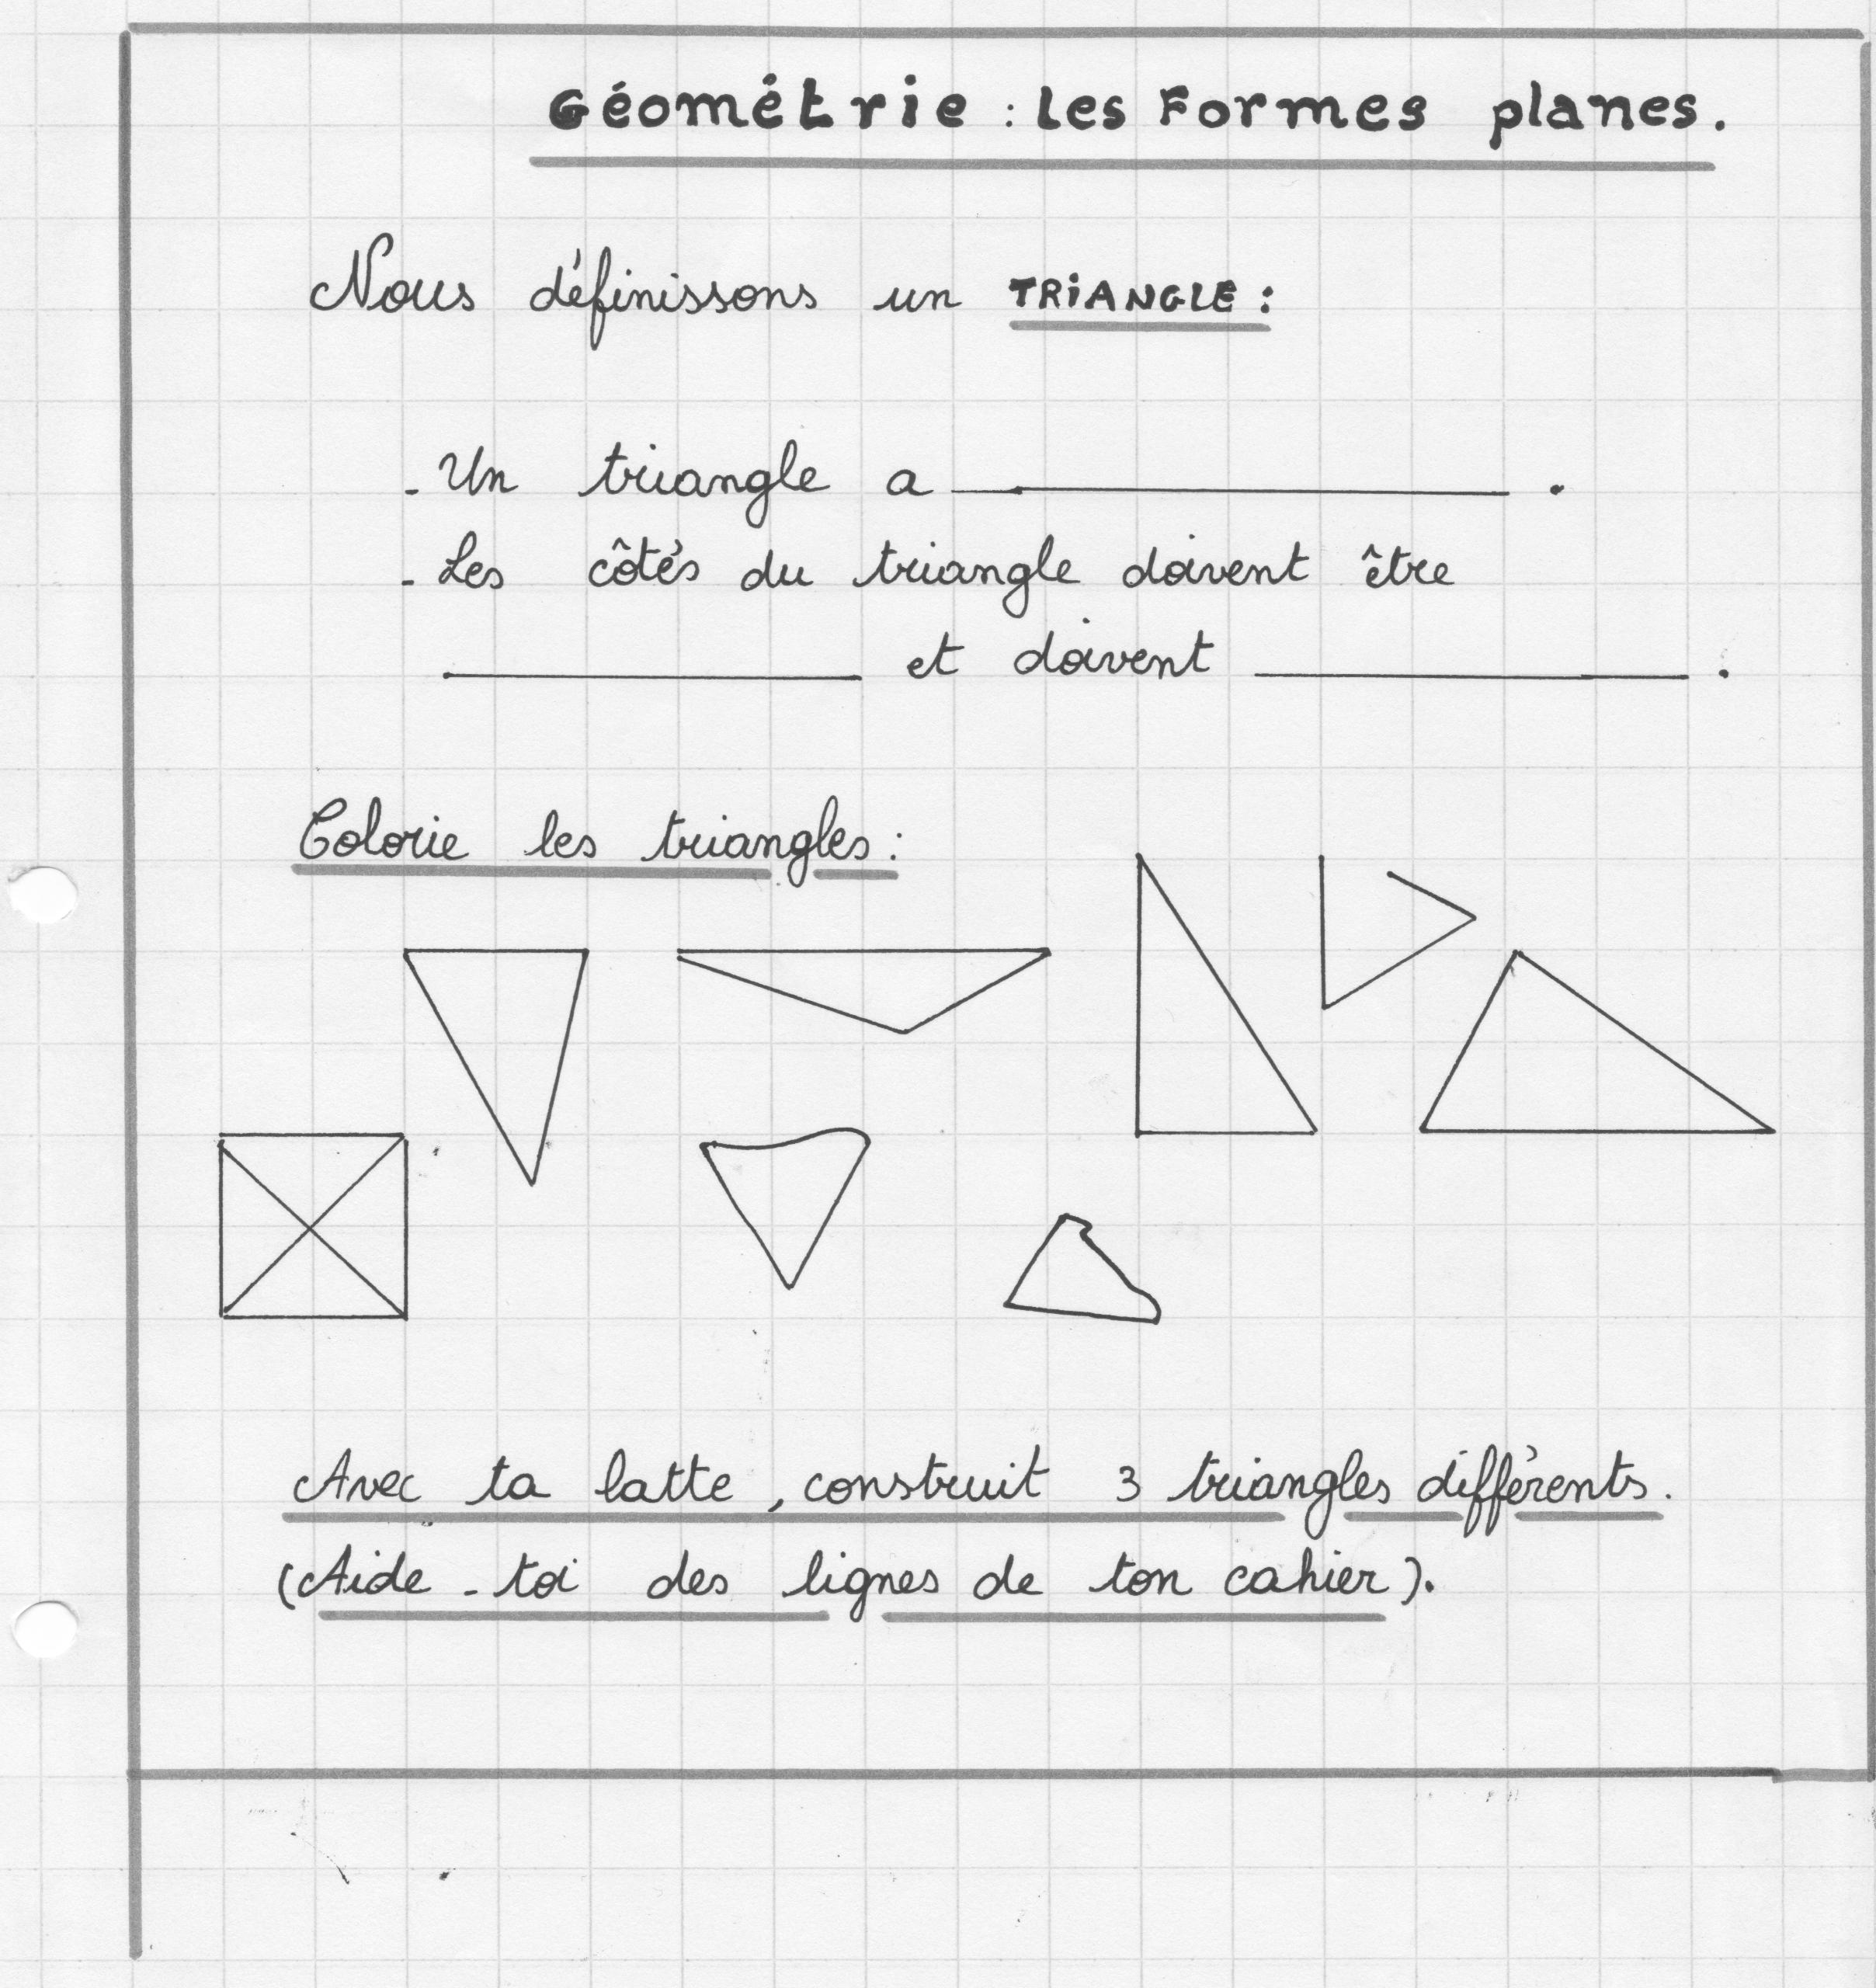 Géométrie : Les Formes planes.
Nous définissons un TRiANGLE :
- Un triangle a ____________ .
- Les côtés du triangle doivent être
____________ et doivent ____________ .
Colorie les triangles :
Avec ta latte, construit 3 triangles différents.
(Aide-toi des lignes de ton cahier).